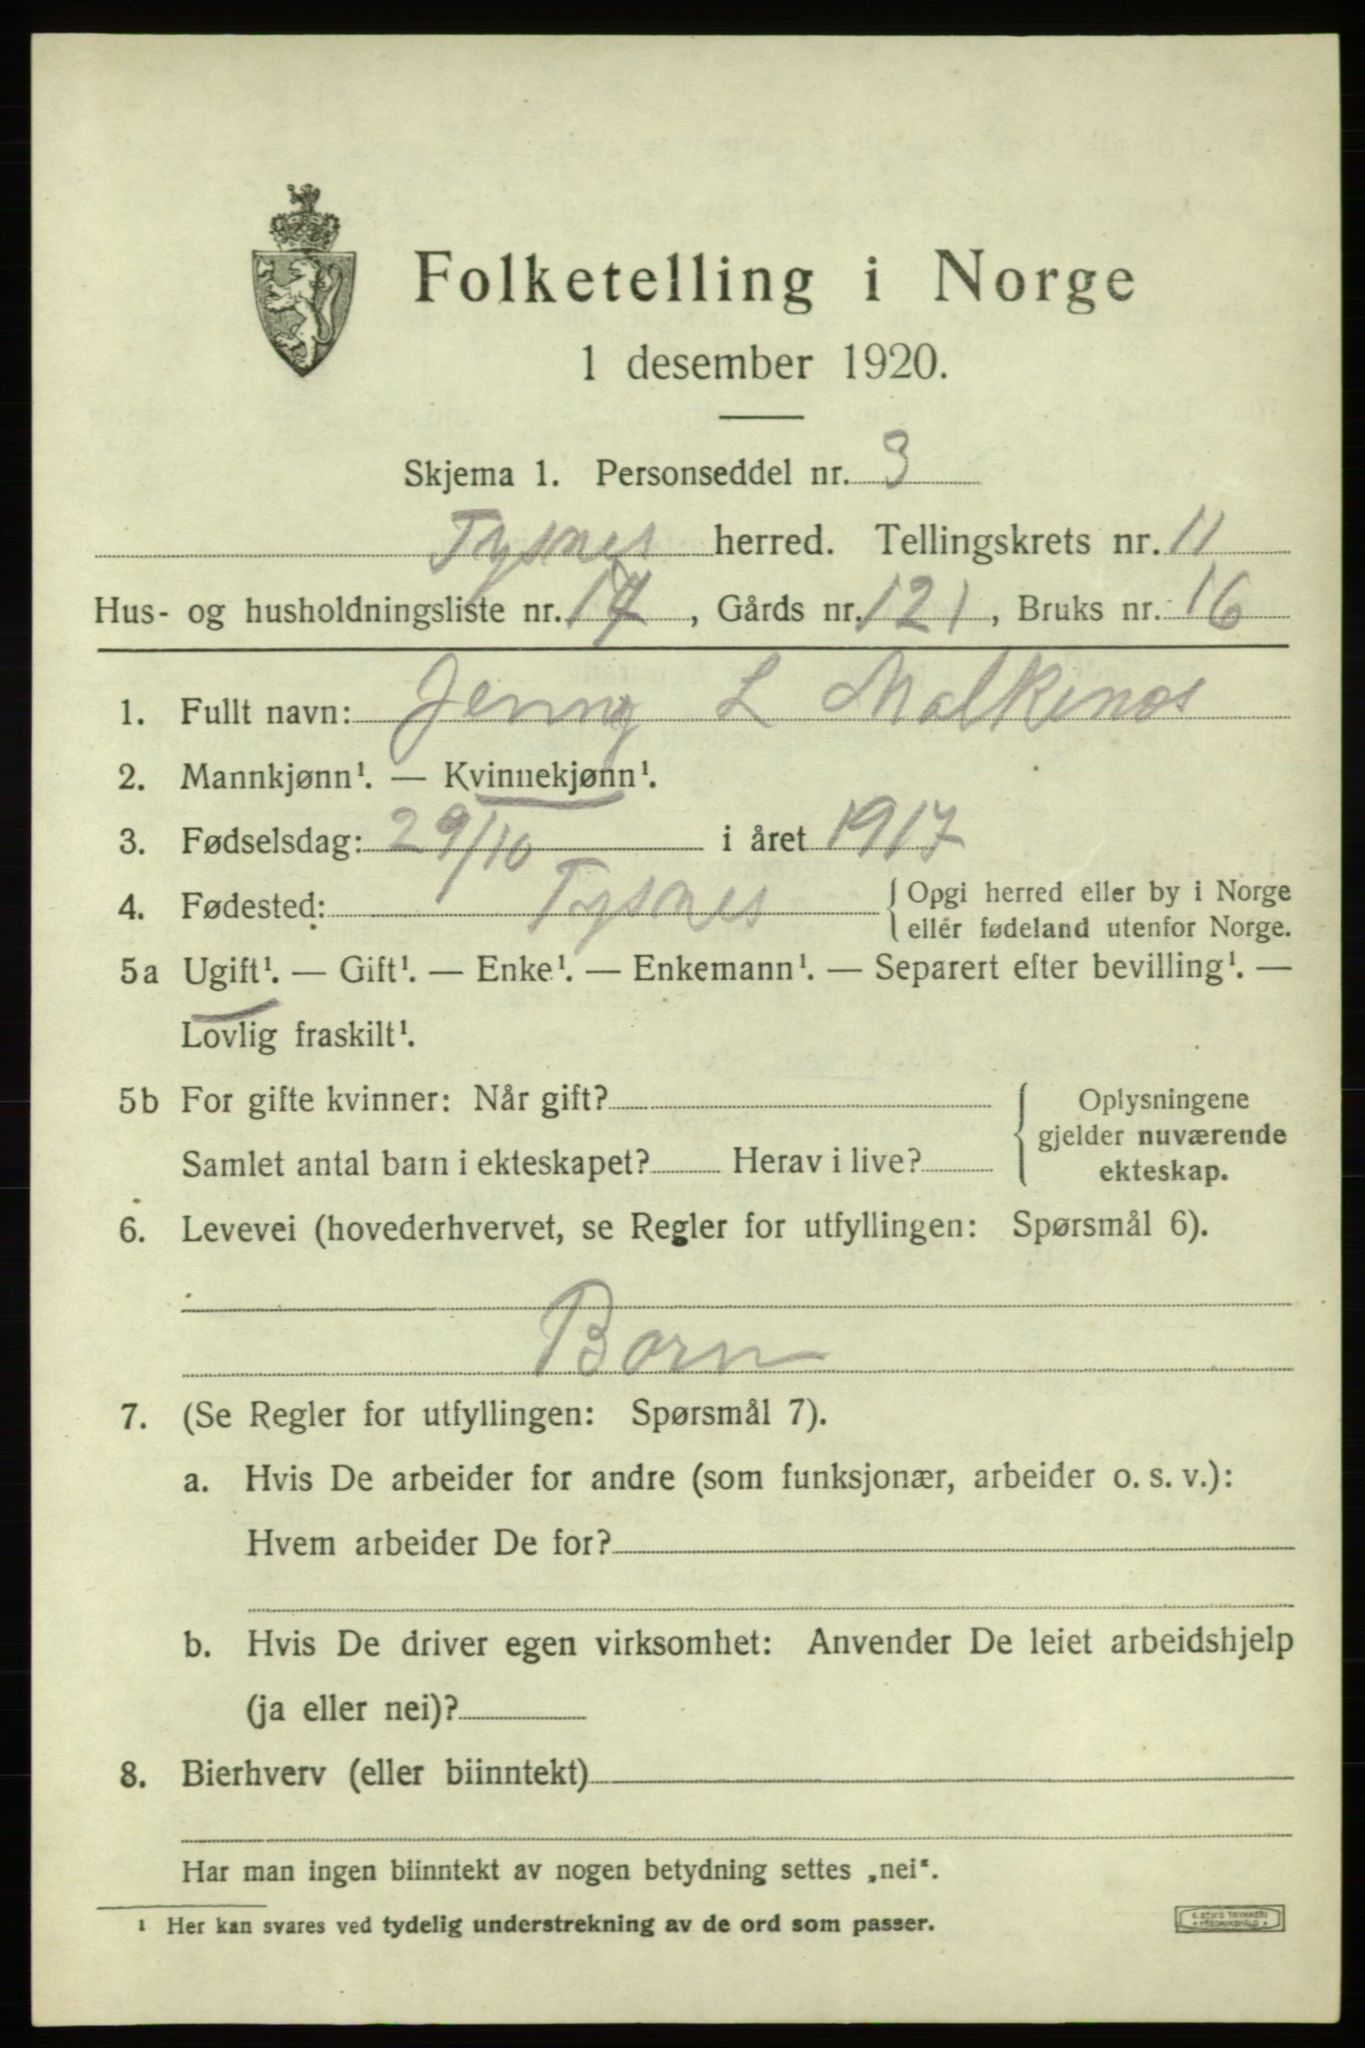 Folketelling i Norge
1 desember 1920.
Skjema 1. Personseddel nr. 3
Tysnes herred. Tellingskrets nr. 11
Hus- og husholdningsliste nr. 17, Gårds nr. 121, Bruks nr. 16
1. Fullt navn: Jenny L Malkenes
2. Mannkjønn¹. — Kvinnekjønn¹.
3. Fødselsdag: 29/10 i året 1917
4. Fødested: Tysnes { Opgi herred eller by i Norge
eller fødeland utenfor Norge.
5a Ugift¹. — Gift¹. — Enke¹. — Enkemann¹. — Separert efter bevilling¹. —
Lovlig fraskilt¹.
5b For gifte kvinner: Når gift?
Samlet antal barn i ekteskapet? Herav i live?
Oplysningene
gjelder nuværende
ekteskap.
6. Levevei (hovederhvervet, se Regler for utfyllingen: Spørsmål 6).
Born
7. (Se Regler for utfyllingen: Spørsmål 7).
a. Hvis De arbeider for andre (som funksjonær, arbeider o. s. v.):
Hvem arbeider De for?
b. Hvis De driver egen virksomhet: Anvender De leiet arbeidshjelp
(ja eller nei)?
8. Bierhverv (eller biinntekt)
Har man ingen biinntekt av nogen betydning settes „nei“.
¹ Her kan svares ved tydelig understrekning av de ord som passer.